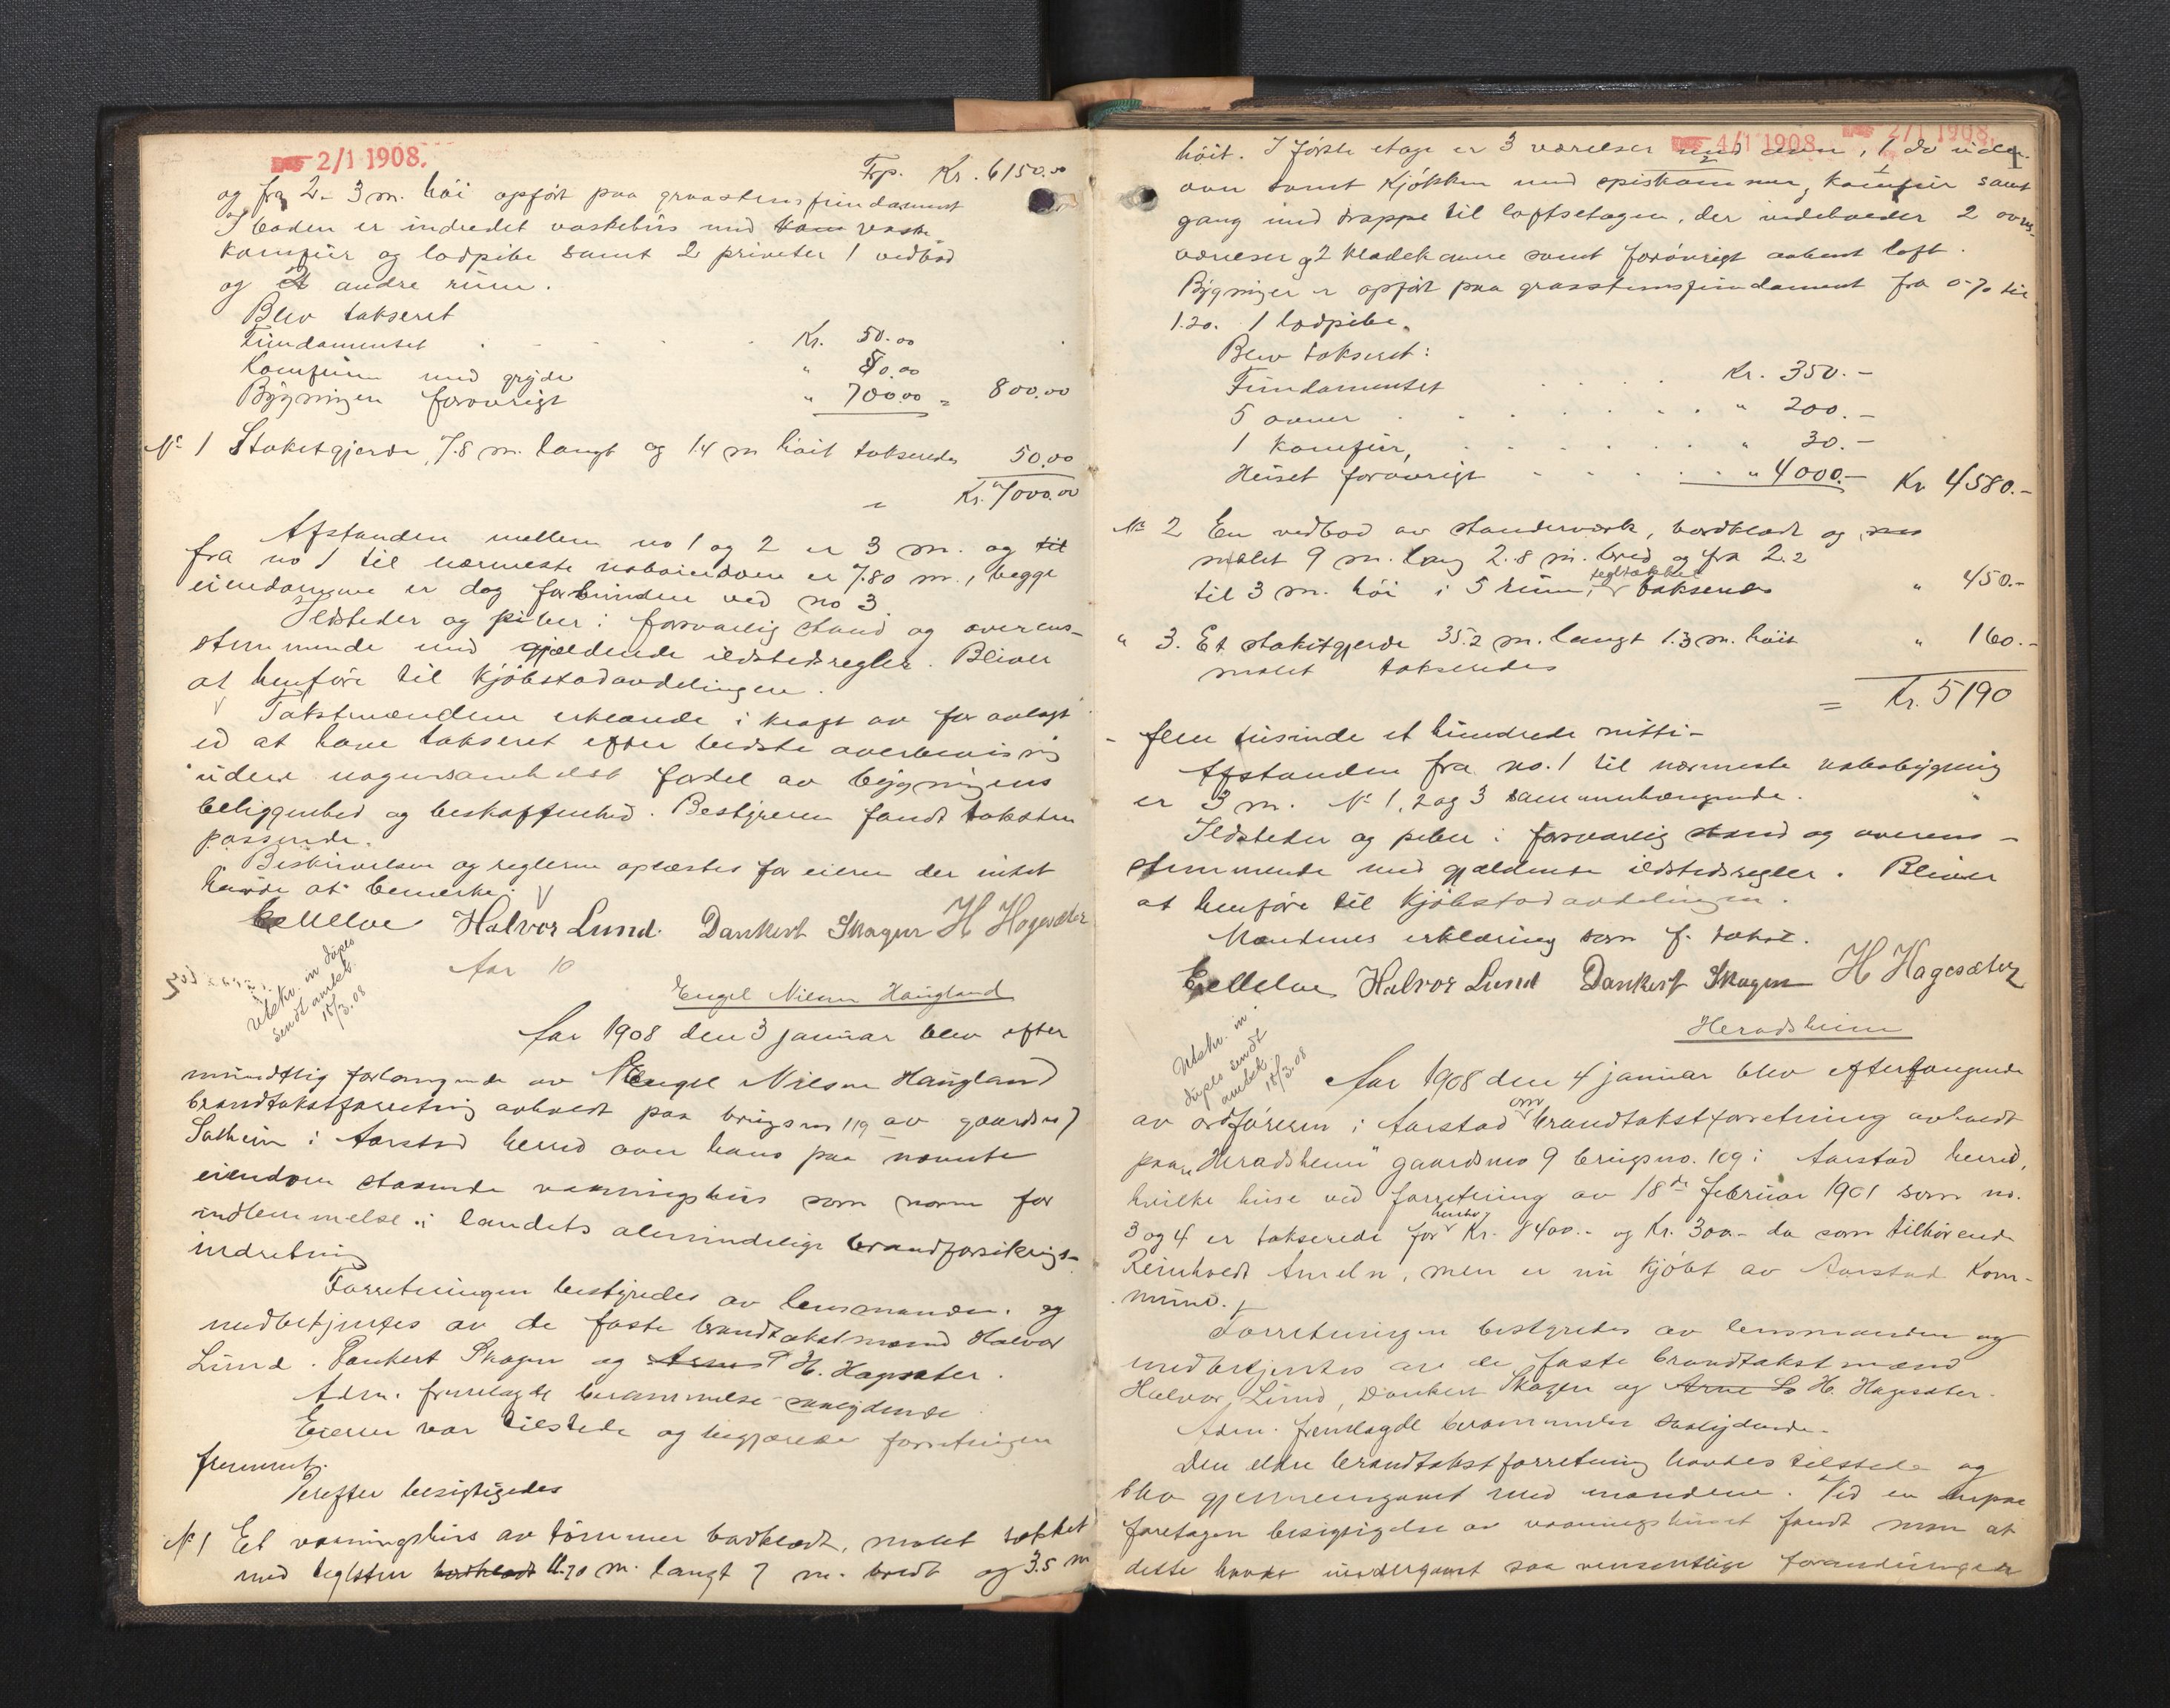 2/1 1908.
Trp. Kr. 6150.00
og fra 2-3 m. hói opfört paa graastensfundament
I boden er indredet vaskehus med vaske
komfur og lodpibe samt 2 priveter 1 vedbod
og 2 andre rum.
Blev takseret
Fundamentet Kr. 50.00
Komfuren med gryde " 50.00
Bygningen forovrigt " 700.00 = 800.00
No 1 Staketgjerde, 7.8 m. langt og 1.4 m höit takseredes 50.00
= Kr. 7000.00
Afstanden mellem no 1 og 2 er 3 m. og til
fra no 1 til nærmeste naboeiendom er 7.80 m., begge
eiendomme er dog forbundne ved no 3.
Ildsteder og piber i forsvarlig stand og overens-
stemmende med gjældende ildstedsregler. Bliver
at henföre til Kjöbstadavdelingen.
Takstmændene erklærede i kraft av før avlagt
ed at have takseret efter bedste overbevisning
uden nogensomhelst fordel av bygningens
beliggenhed og beskaffenhed. Bestyreren fandt taksten
passende.
Beskrivelsen og reglerne oplæstes for eieren der intet
havde at bemerke.
Halvor Lund. Dankert Skagen H Hagesæter
Aar 10
Utskr. in duplo
sendt amtet
18/3.08
Engel Nilsen Haugland
Aar 1908 den 3 januar blev efter
mundtlig forlangende av Engel Nilsen Haugland
brandtakstforretning avholdt paa brugsno 119 av gaardsno 7
Solheim i Aarstad herred over hans paa nævnte
eiendom staaende vaaningshus som norm for
indlemmelse i landets almindelige brandforsikrings-
indretning
Forretningen bestyredes av lensmanden og
medbetjentes av de faste brandtakstmænd Halvor
Lund. Dankert Skagen og Arne H. Hagesæter.
Adm. fremlagde berammelse saalydende
Eieren var tilstede og begjærede forretningen
fremmet.
Derefter besigtigedes
No 1 Et vaaningshus av tømmer bordklædt, malet tækket
med teglsten bordklædt 11.70 m. langt 7 m. bredt og 3.5 m
4/1 1908. 2/1 1908.
höit. I förste etage er 3 værelser med ovn, 1 do uden
ovn samt Kjökken med spiskammer, komfur samt
gang med trappe til loftsetagen, der indeholder 2 ovns-
værelser og 2 klædekamre samt forövrigt aabent loft.
Bygningen er opført paa graastensfundament fra 0.70 til
1.20. 1 lodpibe.
Blev takseret:
Fundamentet Kr. 350.-
5 ovner " 200.-
1 komfur, " 30.-
Huset forövrigt " 4000.- Kr 4580.-
No 2 En vedbod av standerværk, bordklædt og
malet 9 m. lang 2.8 m. bred og fra 2.2
til 3 m. hói i 5 rum, tegltækket takseredes " 450.-
" 3. Et stakitgjerde 35.2 m. langt 1.3 m. höit
malet takseredes " 160.-
= Kr. 5190
- fem tusinde et hundrede nitti -
Afstanden fra no. 1 til nærmeste nabobygning
er 3 m. No 1, 2 og 3 sammenhængende.
Ildsteder og piber i forsvarlig stand og overens-
stemmende med gjældende ildstedsregler. Bliver
at henføre til Kjöbstadavdelingen.
Mændenes erklæring som f. takst.
Halvor Lund Dankert Skagen H Hagesæter
Utskr. in
duplo sendt
amtet.
18/3.08
Heradsheim
Aar 1908 den 4 januar blev efter forlangende
av ordföreren i Aarstad om brandtakstforretning avholdt
paa "Heradsheim" gaardsno 9 brugsno. 109 i Aarstad herred,
hvilke huse ved forretning av 18de februar 1901 som no.
3 og 4 er takserede for henhv. Kr. 8400.- og Kr. 300.- da som tilhørende
Reinholdt Ameln, men er nu kjöbt av Aarstad Kom-
mune.
Forretningen bestyredes av lensmanden og
medbetjentes av de faste brandtakstmænd
Halvor Lund, Dankert Skagen og Arne H. Hagesæter.
Adm. fremlagde berammelse saalydende.
Den eldre brandtakstforretning havdes tilstede og
blev gjennemgaaet med mændene. Ved en
foretagen besigtigelse av vaaningshuset fandt man at
dette havde undergaaet saa væsentlige forandringer